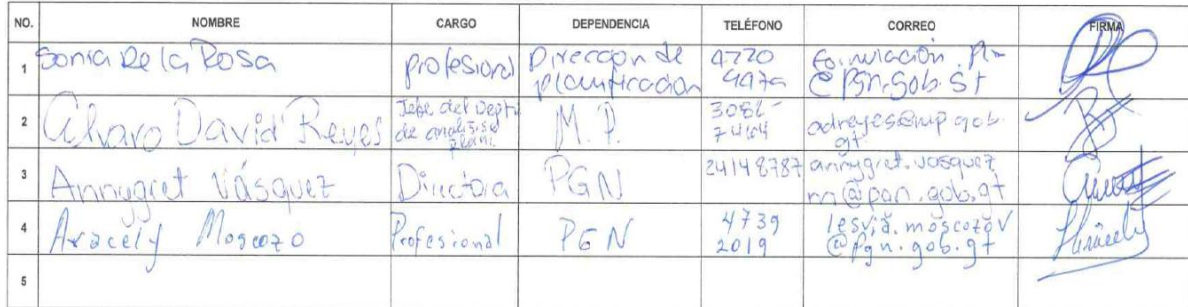 NO. NOMBRE CARGO DEPENDENCIA TELÉFONO CORREO FIRMA
1 Sonia De la Rosa profesional Direccion de planificacion 4720 @pgn.gob.gt
2 Alvaro David Reyes Jefe del Depto de analisis M.P. 3086- adreyes@mp.gob.gt
3 Annygret Vásquez Directora PGN 24148787 annygret.vasquez @pgn.gob.gt
4 Aracely Moscozo Profesional PGN 4739 2019 lesvia.moscozov @pgn.gob.gt
5